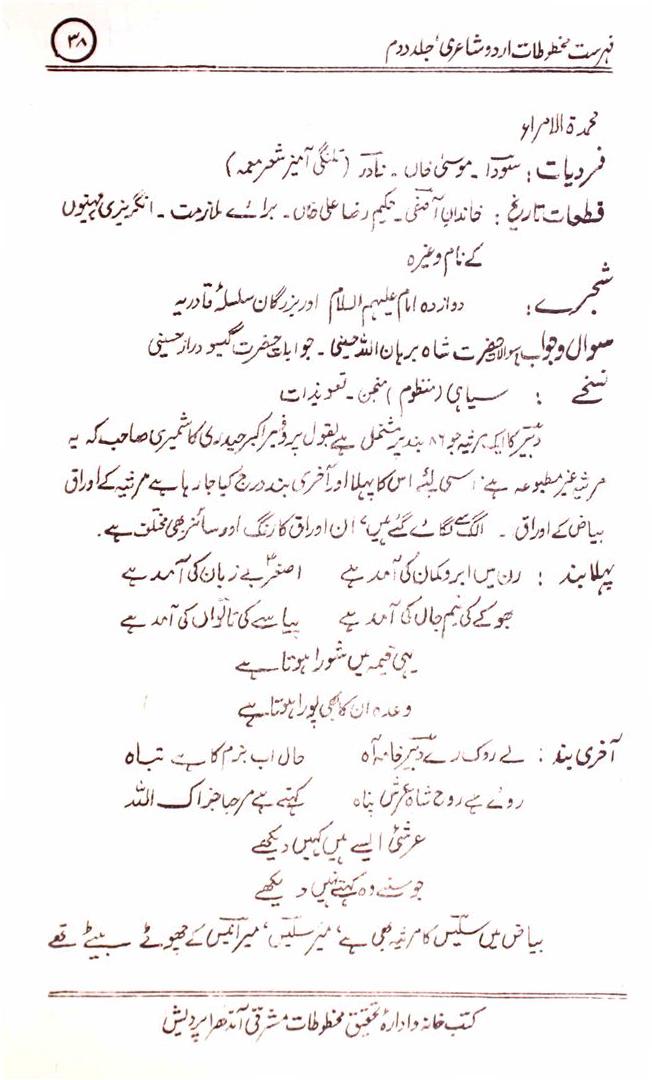 فہرست مخطوطات اردو شاعری، جلد دوم
۳۸
عمدۃ الامراء
فردیات : سودا ۔ موسیٰ خاں ۔ نادر (تلنگی آمیز شعر معمہ)
قطعات تاریخ : خاندان آصفی ۔ حکیم رضا علی خاں ۔ برائے ملازمت ۔ انگریزی مہینوں
کے نام وغیرہ
شجرے : دوازدہ امام علیہم السلام اور بزرگان سلسلۂ قادریہ
سوال و جواب : سوالاً حضرت شاہ برہان اللہ حسینی ۔ جواباً حضرت گیسو دراز حسینی
نسخے : سیاہی (منظوم) منجن ۔ تعویذات
دبیر کا ایک مرثیہ جو ۸۶ بند پر مشتمل ہے بقول پروفیسر اکبر حیدری کاشمیری صاحب کہ یہ
مرثیہ غیر مطبوعہ ہے، اسی لئے اس کا پہلا اور آخری بند درج کیا جا رہا ہے مرثیہ کے اوراق
بیاض کے اوراق ۔ الگ سے لگائے گئے ہیں، ان اوراق کا رنگ اور سائز بھی مختلق ہے۔
پہلا بند : رن میں ابرو کمان کی آمد ہے اصغر بے زبان کی آمد ہے
بھوکے کی نیم جاں کی آمد ہے پیاسے کی ناتواں کی آمد ہے
یہی خیمہ میں شورا ہوتا ہے
وعدہ ان کا بھی پورا ہوتا ہے
آخری بند : لے روک رے دبیر خامہ آہ حال اب بزم کا ہے تباہ
روئے ہے روح شاہ عرش پناہ کہتے ہے مرحبا جزاک اللہ
عرشی ایسے ہیں کہیں دیکھے
جو سنے وہ کہتے نہیں دیکھے
بیاض میں سلیس کا مرثیہ بھی ہے، میر سلیس، میر انیس کے چھوٹے بیٹے تھے
کتب خانہ و ادارۂ تحقیق مخطوطات مشرقی آندھرا پردیش